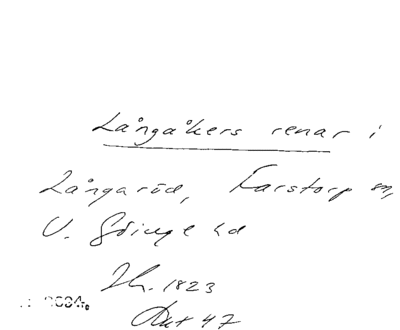 Långåkers renar i
Långaröd, Farstorp sn,
V. Göinge hd
1823
47